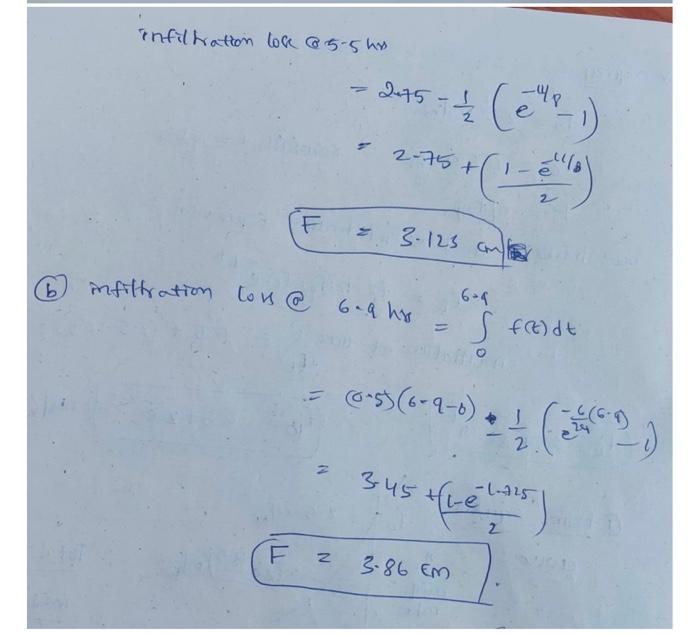 infiltration loss @ 5.5 hrs
= 2.75 - 1/2 (e^-11/8 - 1)
= 2.75 + ((1 - e^-11/8)/2)
F = 3.123 cm
(b) infiltration loss @ 6.9 hrs = ∫_0^6.9 f(t)dt
= (0.5)(6.9-0) - 1/2 (e^(-6/24 (6.9)) - 1)
= 3.45 + ((1-e^-1.725)/2)
F = 3.86 cm.